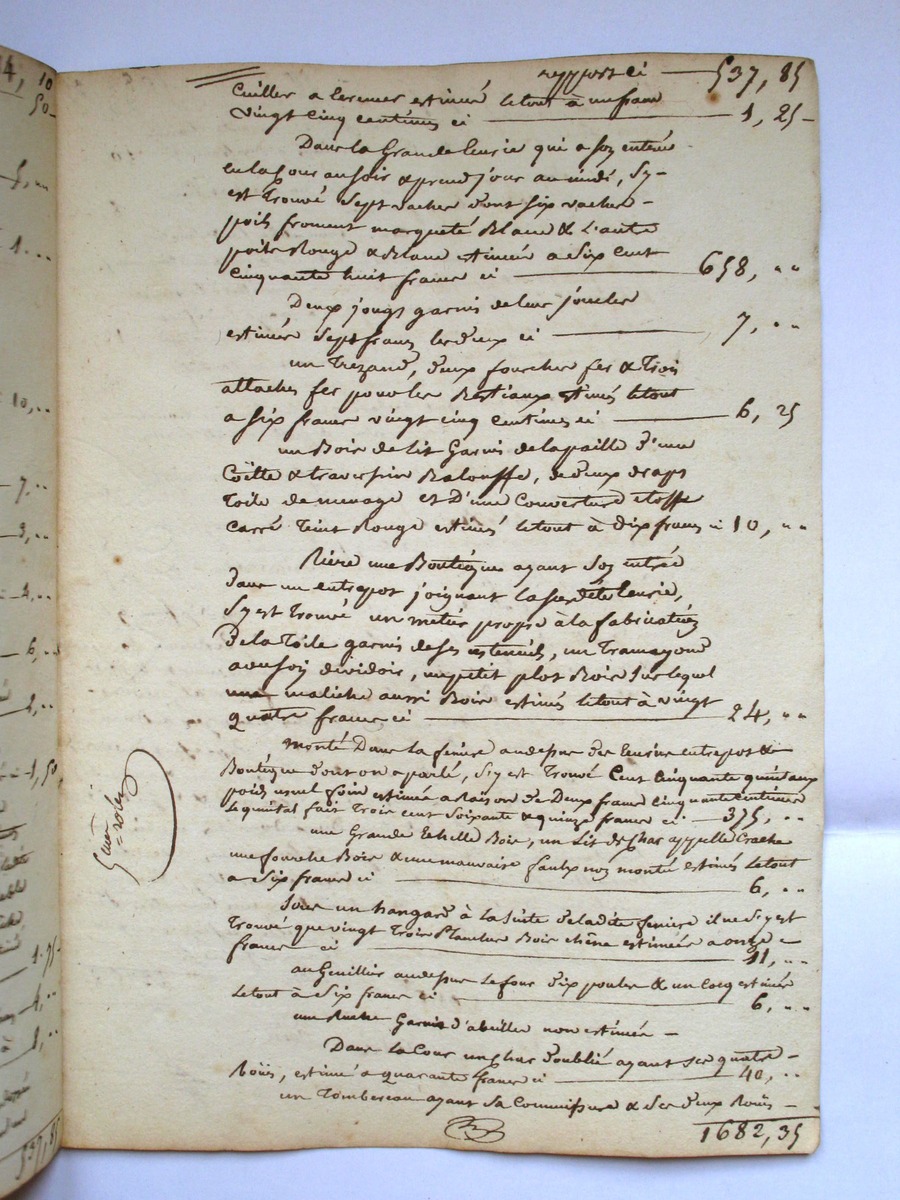 rapport ci 537, 85
Cuiller a letout estimé letout à un franc
vingt cinq centimes ci 1, 25
Dans la Grande Ecurie qui a son entrée
en la Cour au soir & prend jour au midi, S'y
est Trouvé Sept vaches dont six vaches
poils froment marqueté Blanc & L'autre
poils Rouge & Blanc Estimées a Six Cent
cinquante huit francs ci 658, ""
Deux jougs garnis de leur joucles
estimés Sept francs les deux ci 7, ""
un Trezand, deux fourches fer & Trois
attaches fer pour les Bestiaux Estimés letout
a six francs vingt cinq centimes ci 6, 25
un Bois de lit Garnis de la paille d'une
Coëtte & traversin Balouffe, de deux draps
toile de menage et D'une Couverture etoffe
carré Teint Rouge estimés letout à dix francs ci 10, ""
Rière une Boutique ayant Son entrée
dans un entrepot joignant la susdite Ecurie,
S'y est Trouvé un métier propre a la fabrication
de la Toile garnis de ses ustensils, un Tramayond
avec son dividoir, un petit plot Bois Sur lequel
une maliche aussi Bois estimés letout à vingt
quatre francs ci 24, ""
monté Dans la feniere au dessus des Ecuries entrepot &
Boutique dont on a parlé, S'y est Trouvé Cent Cinquante quintaux
poids usuel foin estimée a Raison de Deux francs Cinquante centimes
le quintal fait Trois cent Soixante & quinze francs ci 375, ""
une Grande Echelle Bois, un Lit de char appellé Crache
une fourche Bois & une mauvaise faulx non monté estimés Letout
a Six francs ci 6, ""
Sous un hangard à la Suite de ladite feniere il ne S'y est
Trouvé que vingt Trois Planches Bois chêne estimées a onze
francs ci 11, ""
au Genillier au dessus Le four dix poules & un Cocq estimés
Letout à Six francs ci 6, ""
une Ruche Garnis d'abeilles non estimée
Dans la Cour un char oublié ayant ses quatre
Roües, estimé a quarante francs ci 40, ""
un Tombereau ayant Sa Commissure & Ses deux Roües
1682, 35